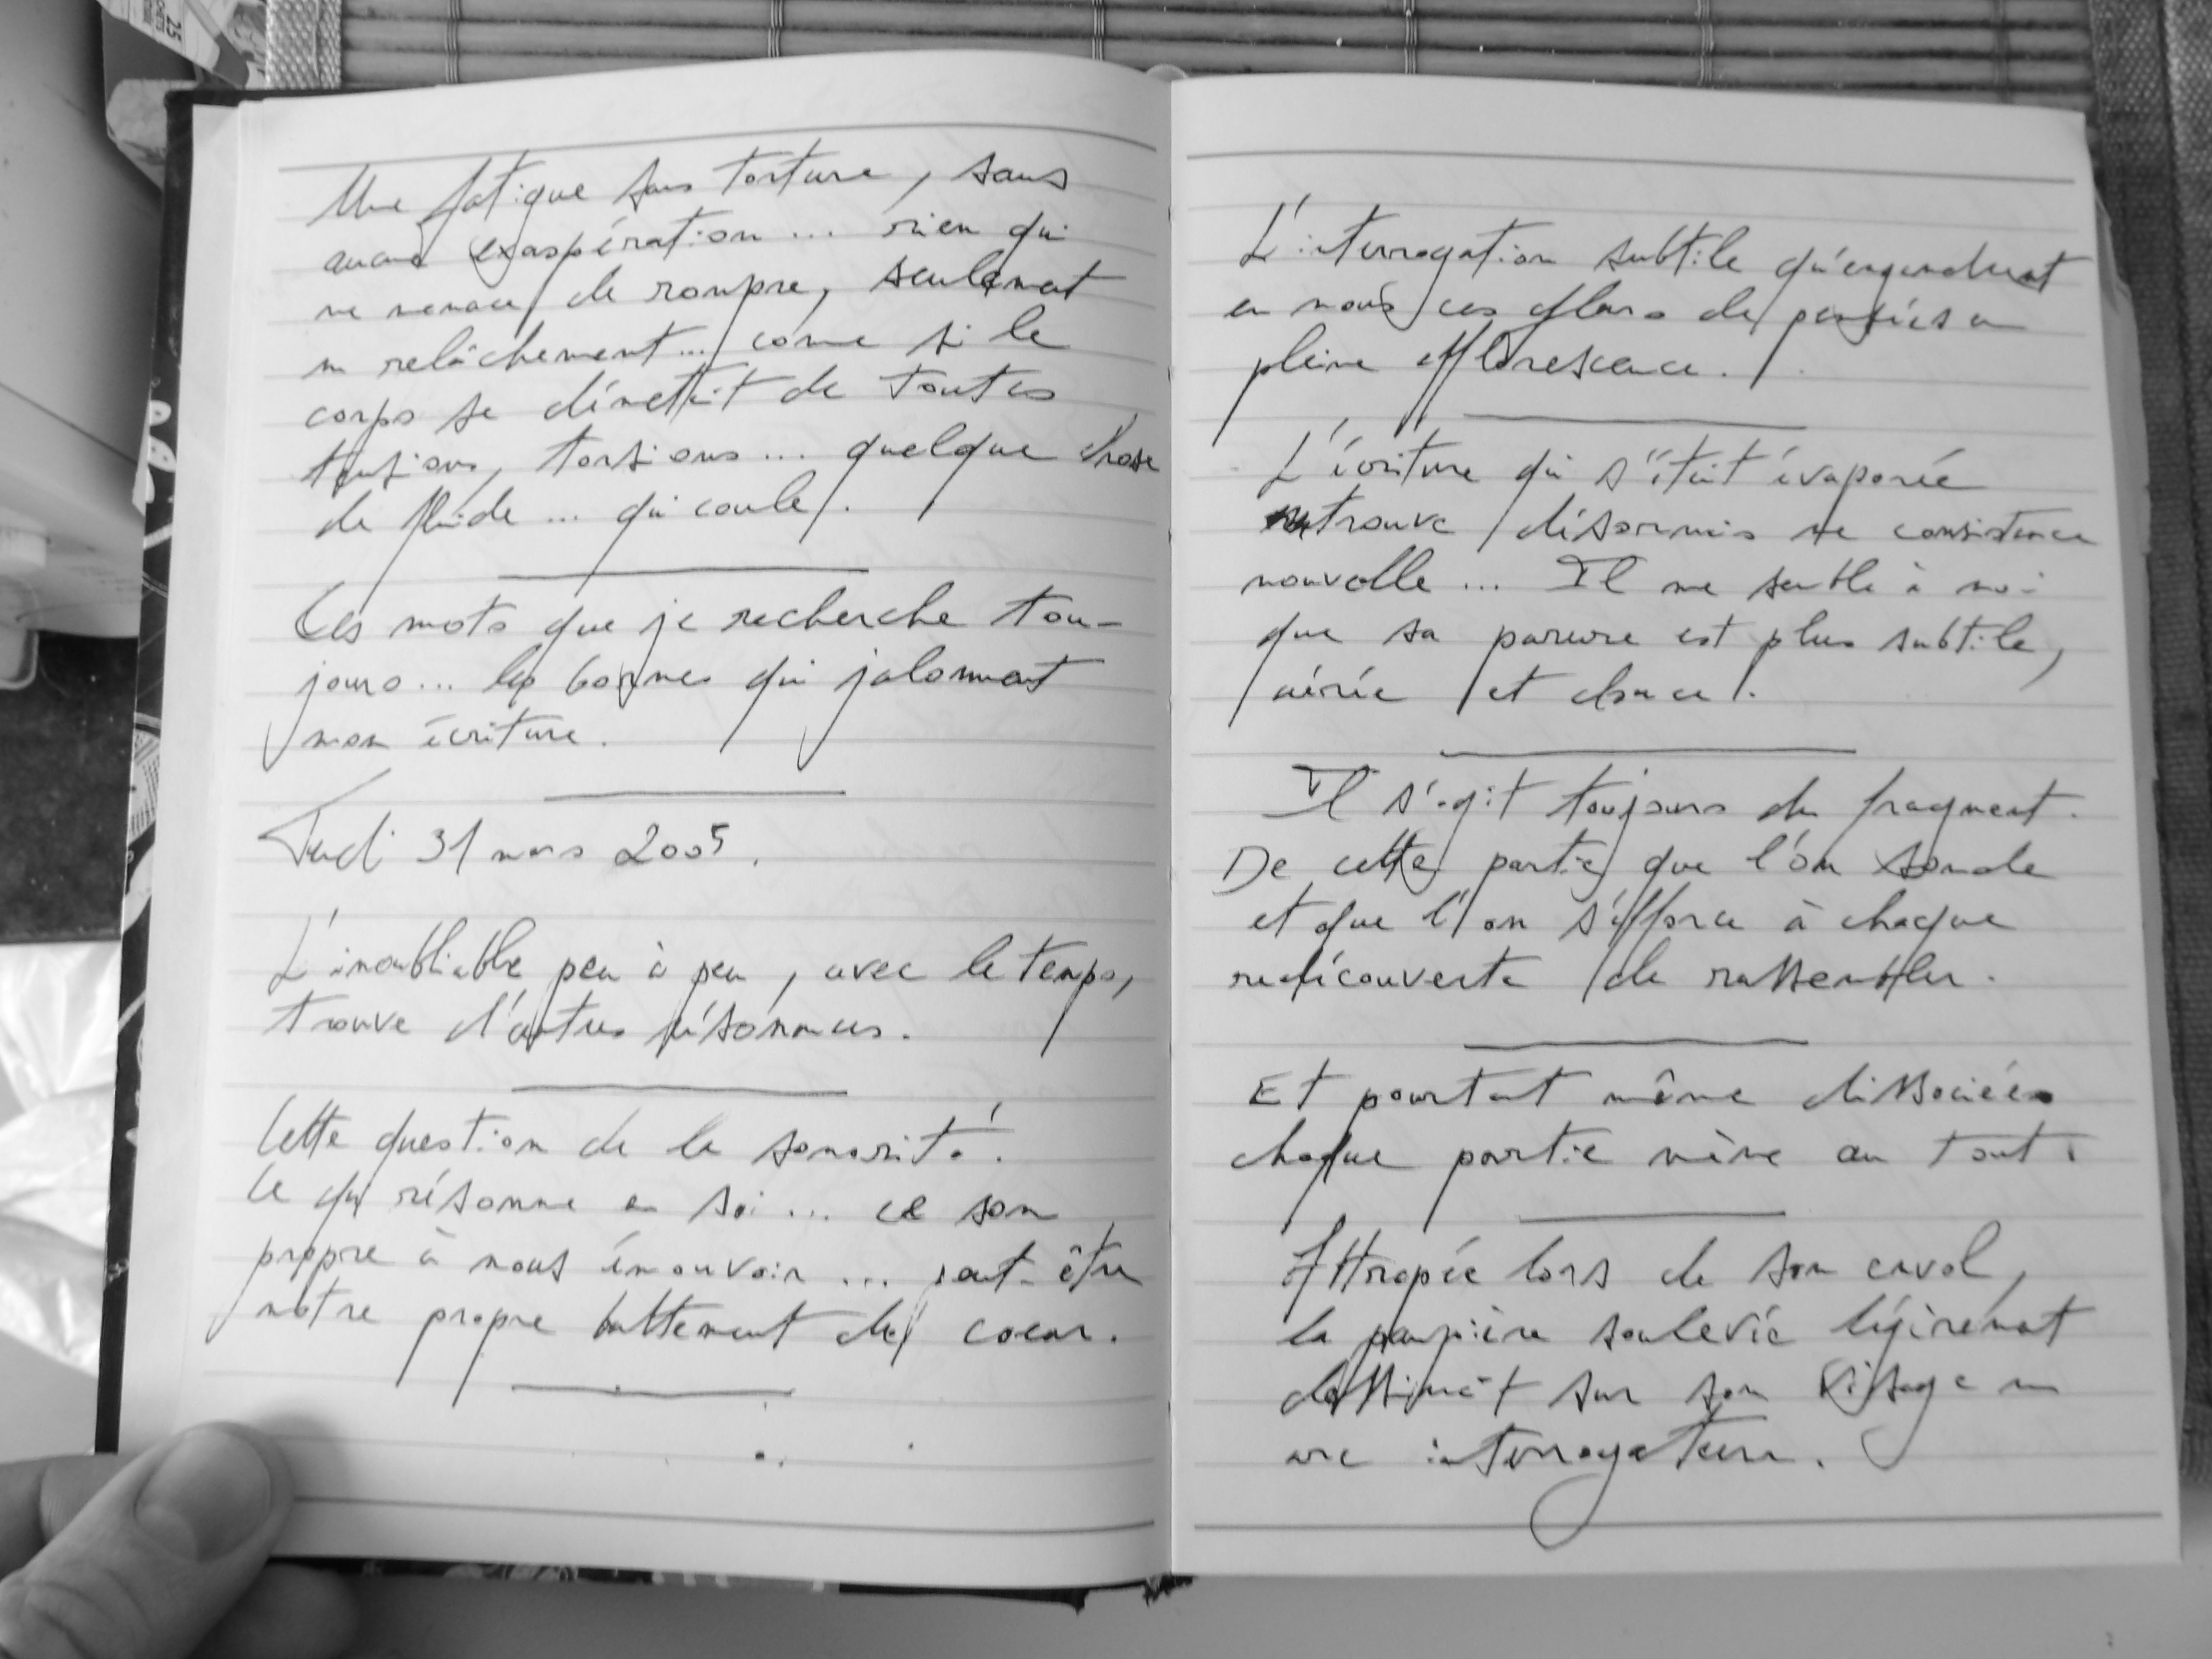 Une fatigue sans torture, sans
aucune exaspération... rien qui
ne menace de rompre, seulement
un relâchement... comme si le
corps se démettait de toutes
tensions, torsions... quelque chose
de fluide... qui coule.
Ces mots que je recherche tou-
jours... les bornes qui jalonnent
mon écriture.
Jeudi 31 mars 2005.
L'inoubliable peu à peu, avec le temps,
trouve d'autres résonances.
Cette question de la sonorité.
Ce qui résonne en soi... ce son
propre à nous émouvoir... peut-être
notre propre battement de coeur.
L'interrogation subtile qu'engendrent
en nous ces de pensées en
pleine efflorescence.
L'écriture qui s'était évaporée
retrouve désormais une consistance
nouvelle... Il me semble à moi
que sa parure est plus subtile,
aérée et douce.
Il s'agit toujours du fragment.
De cette partie que l'on sonde
et que l'on s'efforce à chaque
redécouverte de rassembler.
Et pourtant même dissociées
chaque partie mène au tout.
Attrapée lors de son envol,
la paupière soulevée légèrement
dessinait sur son visage un
arc interrogateur.